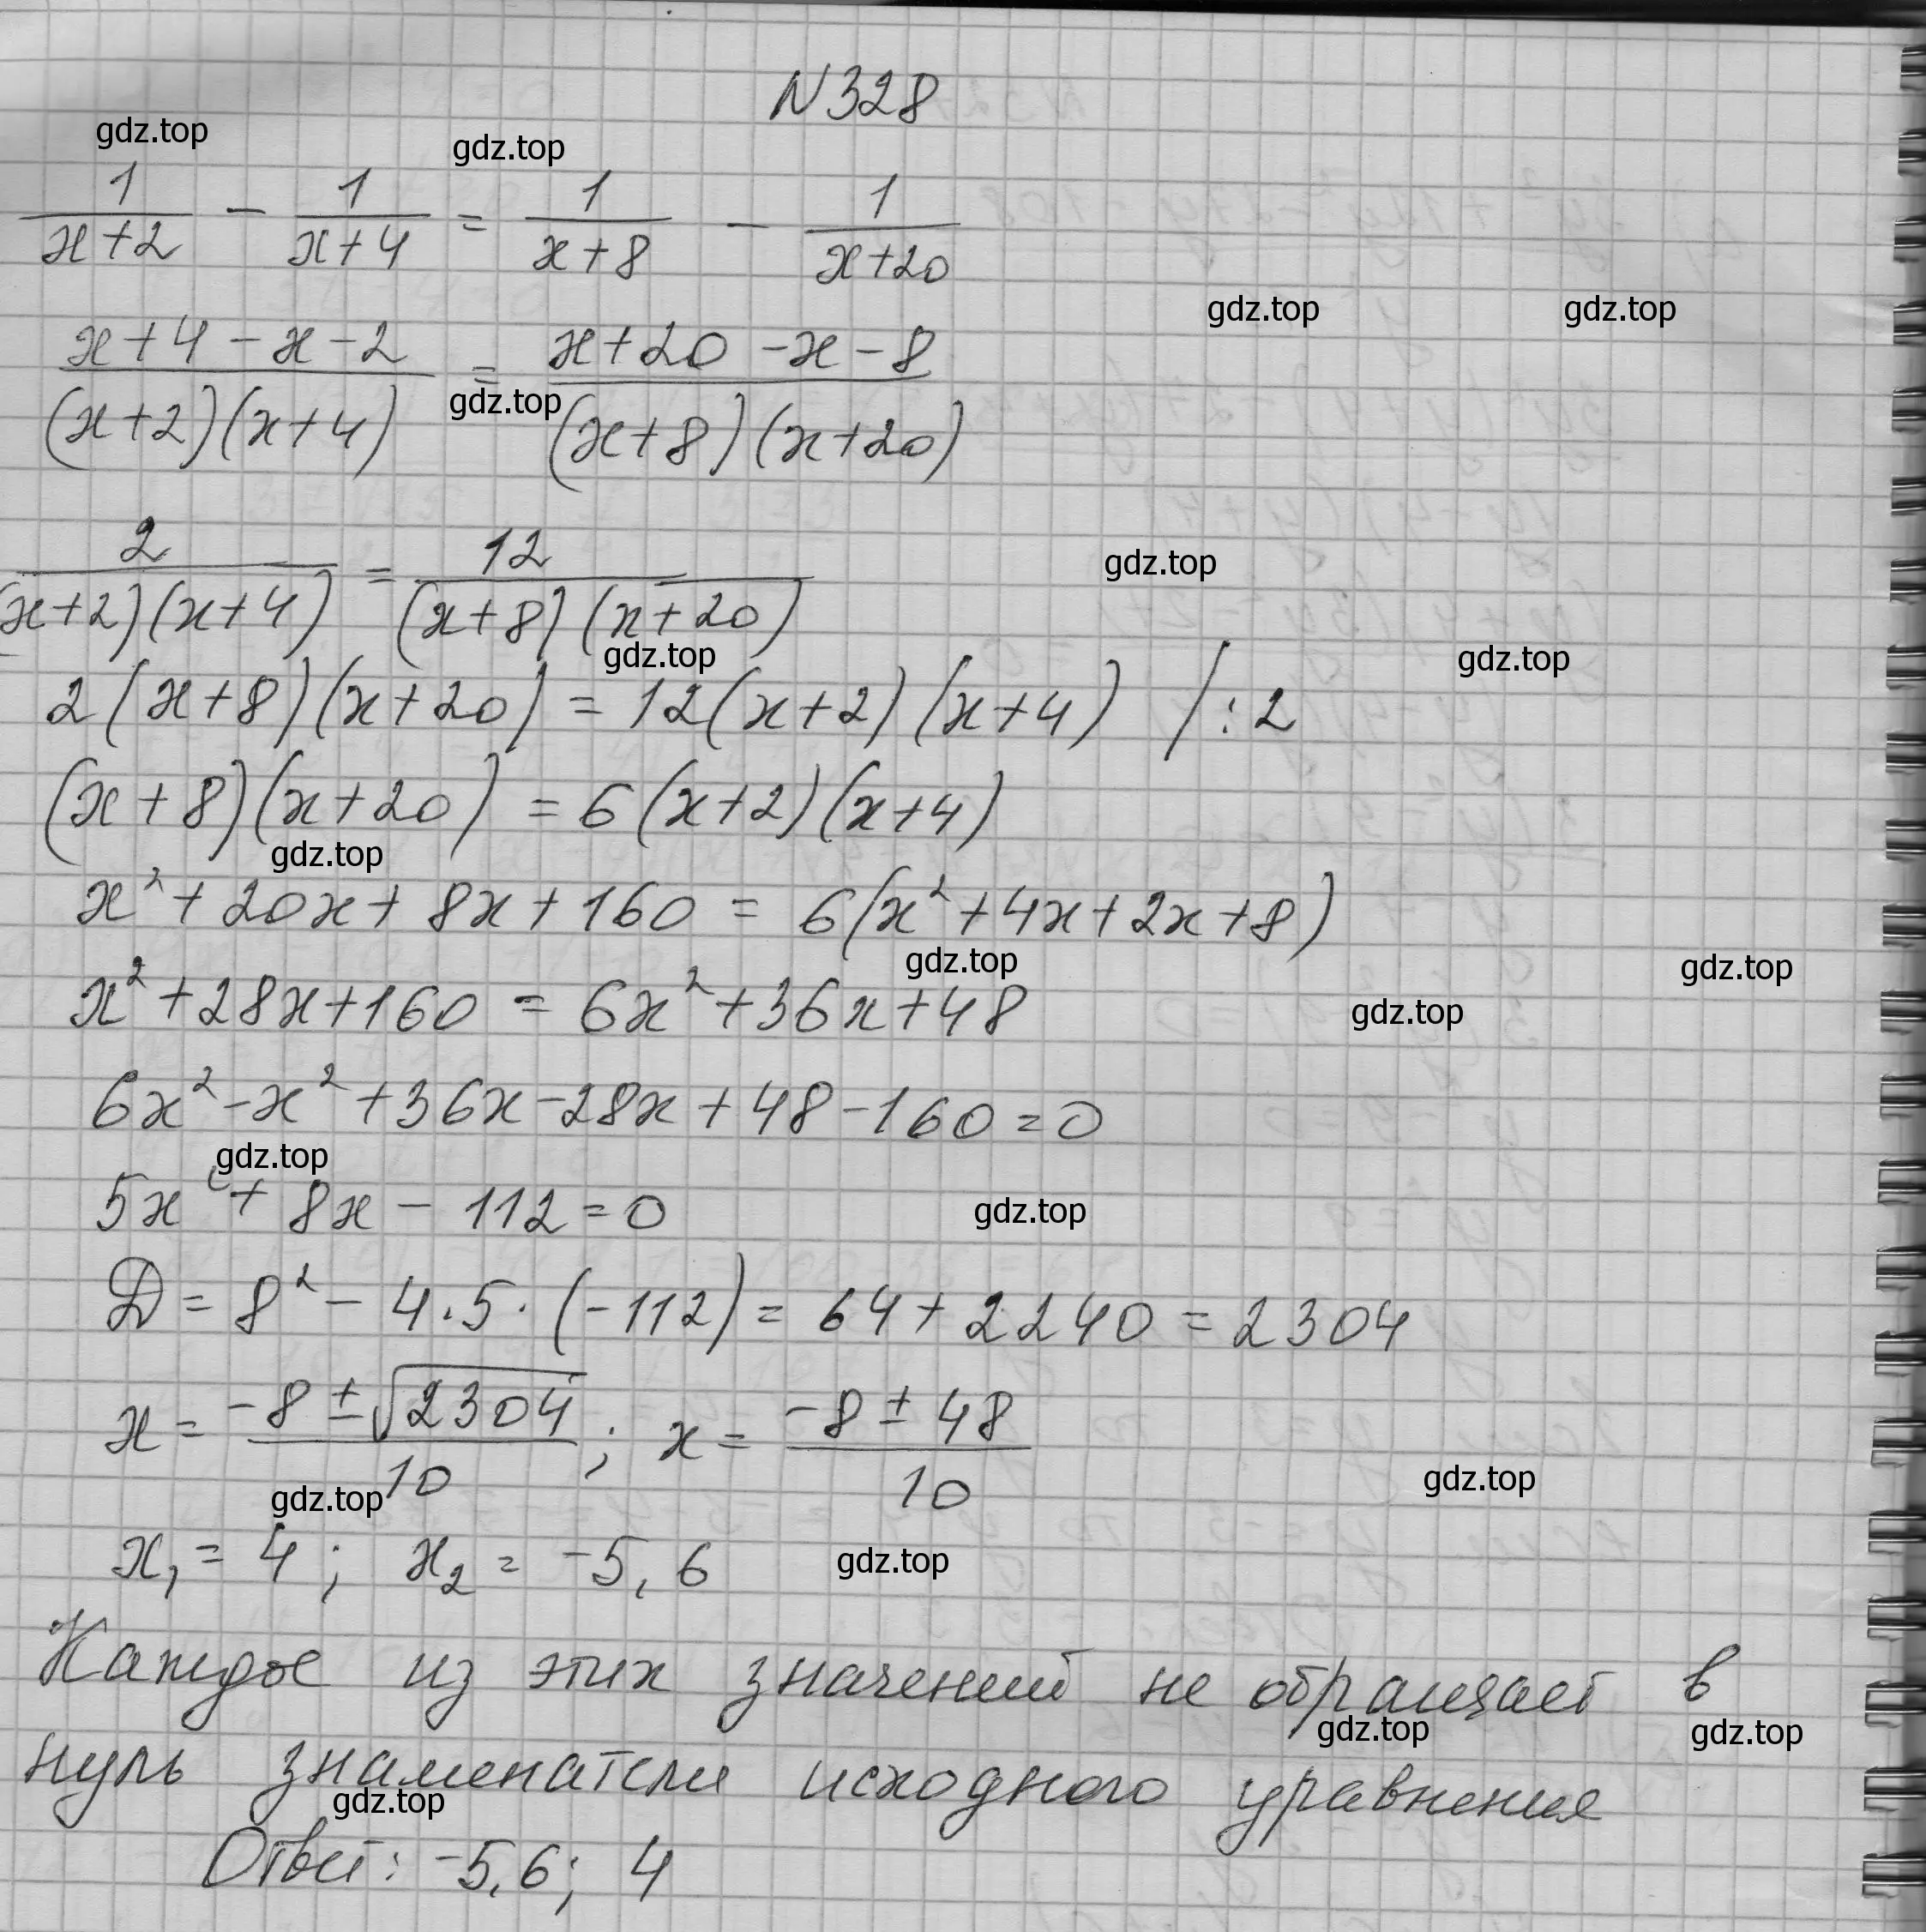 N 328
gdz.top gdz.top
1/(x+2) - 1/(x+4) = 1/(x+8) - 1/(x+20)
gdz.top gdz.top
(x+4-x-2)/((x+2)(x+4)) = (x+20-x-8)/((x+8)(x+20))
gdz.top
2/((x+2)(x+4)) = 12/((x+8)(x+20))
gdz.top
gdz.top gdz.top
2(x+8)(x+20) = 12(x+2)(x+4) /:2
(x+8)(x+20) = 6(x+2)(x+4)
gdz.top
x² + 20x + 8x + 160 = 6(x² + 4x + 2x + 8)
gdz.top gdz.top
x² + 28x + 160 = 6x² + 36x + 48
gdz.top
6x² - x² + 36x - 28x + 48 - 160 = 0
gdz.top
5x² + 8x - 112 = 0
gdz.top
D = 8² - 4·5·(-112) = 64 + 2240 = 2304
x = (-8 ± √2304)/10 ; x = (-8 ± 48)/10
gdz.top gdz.top
x₁ = 4 ; x₂ = -5,6
gdz.top
Каждое из этих значений не обращает в
gdz.top gdz.top
нуль знаменатели исходного уравнения
gdz.top
Ответ: -5,6; 4